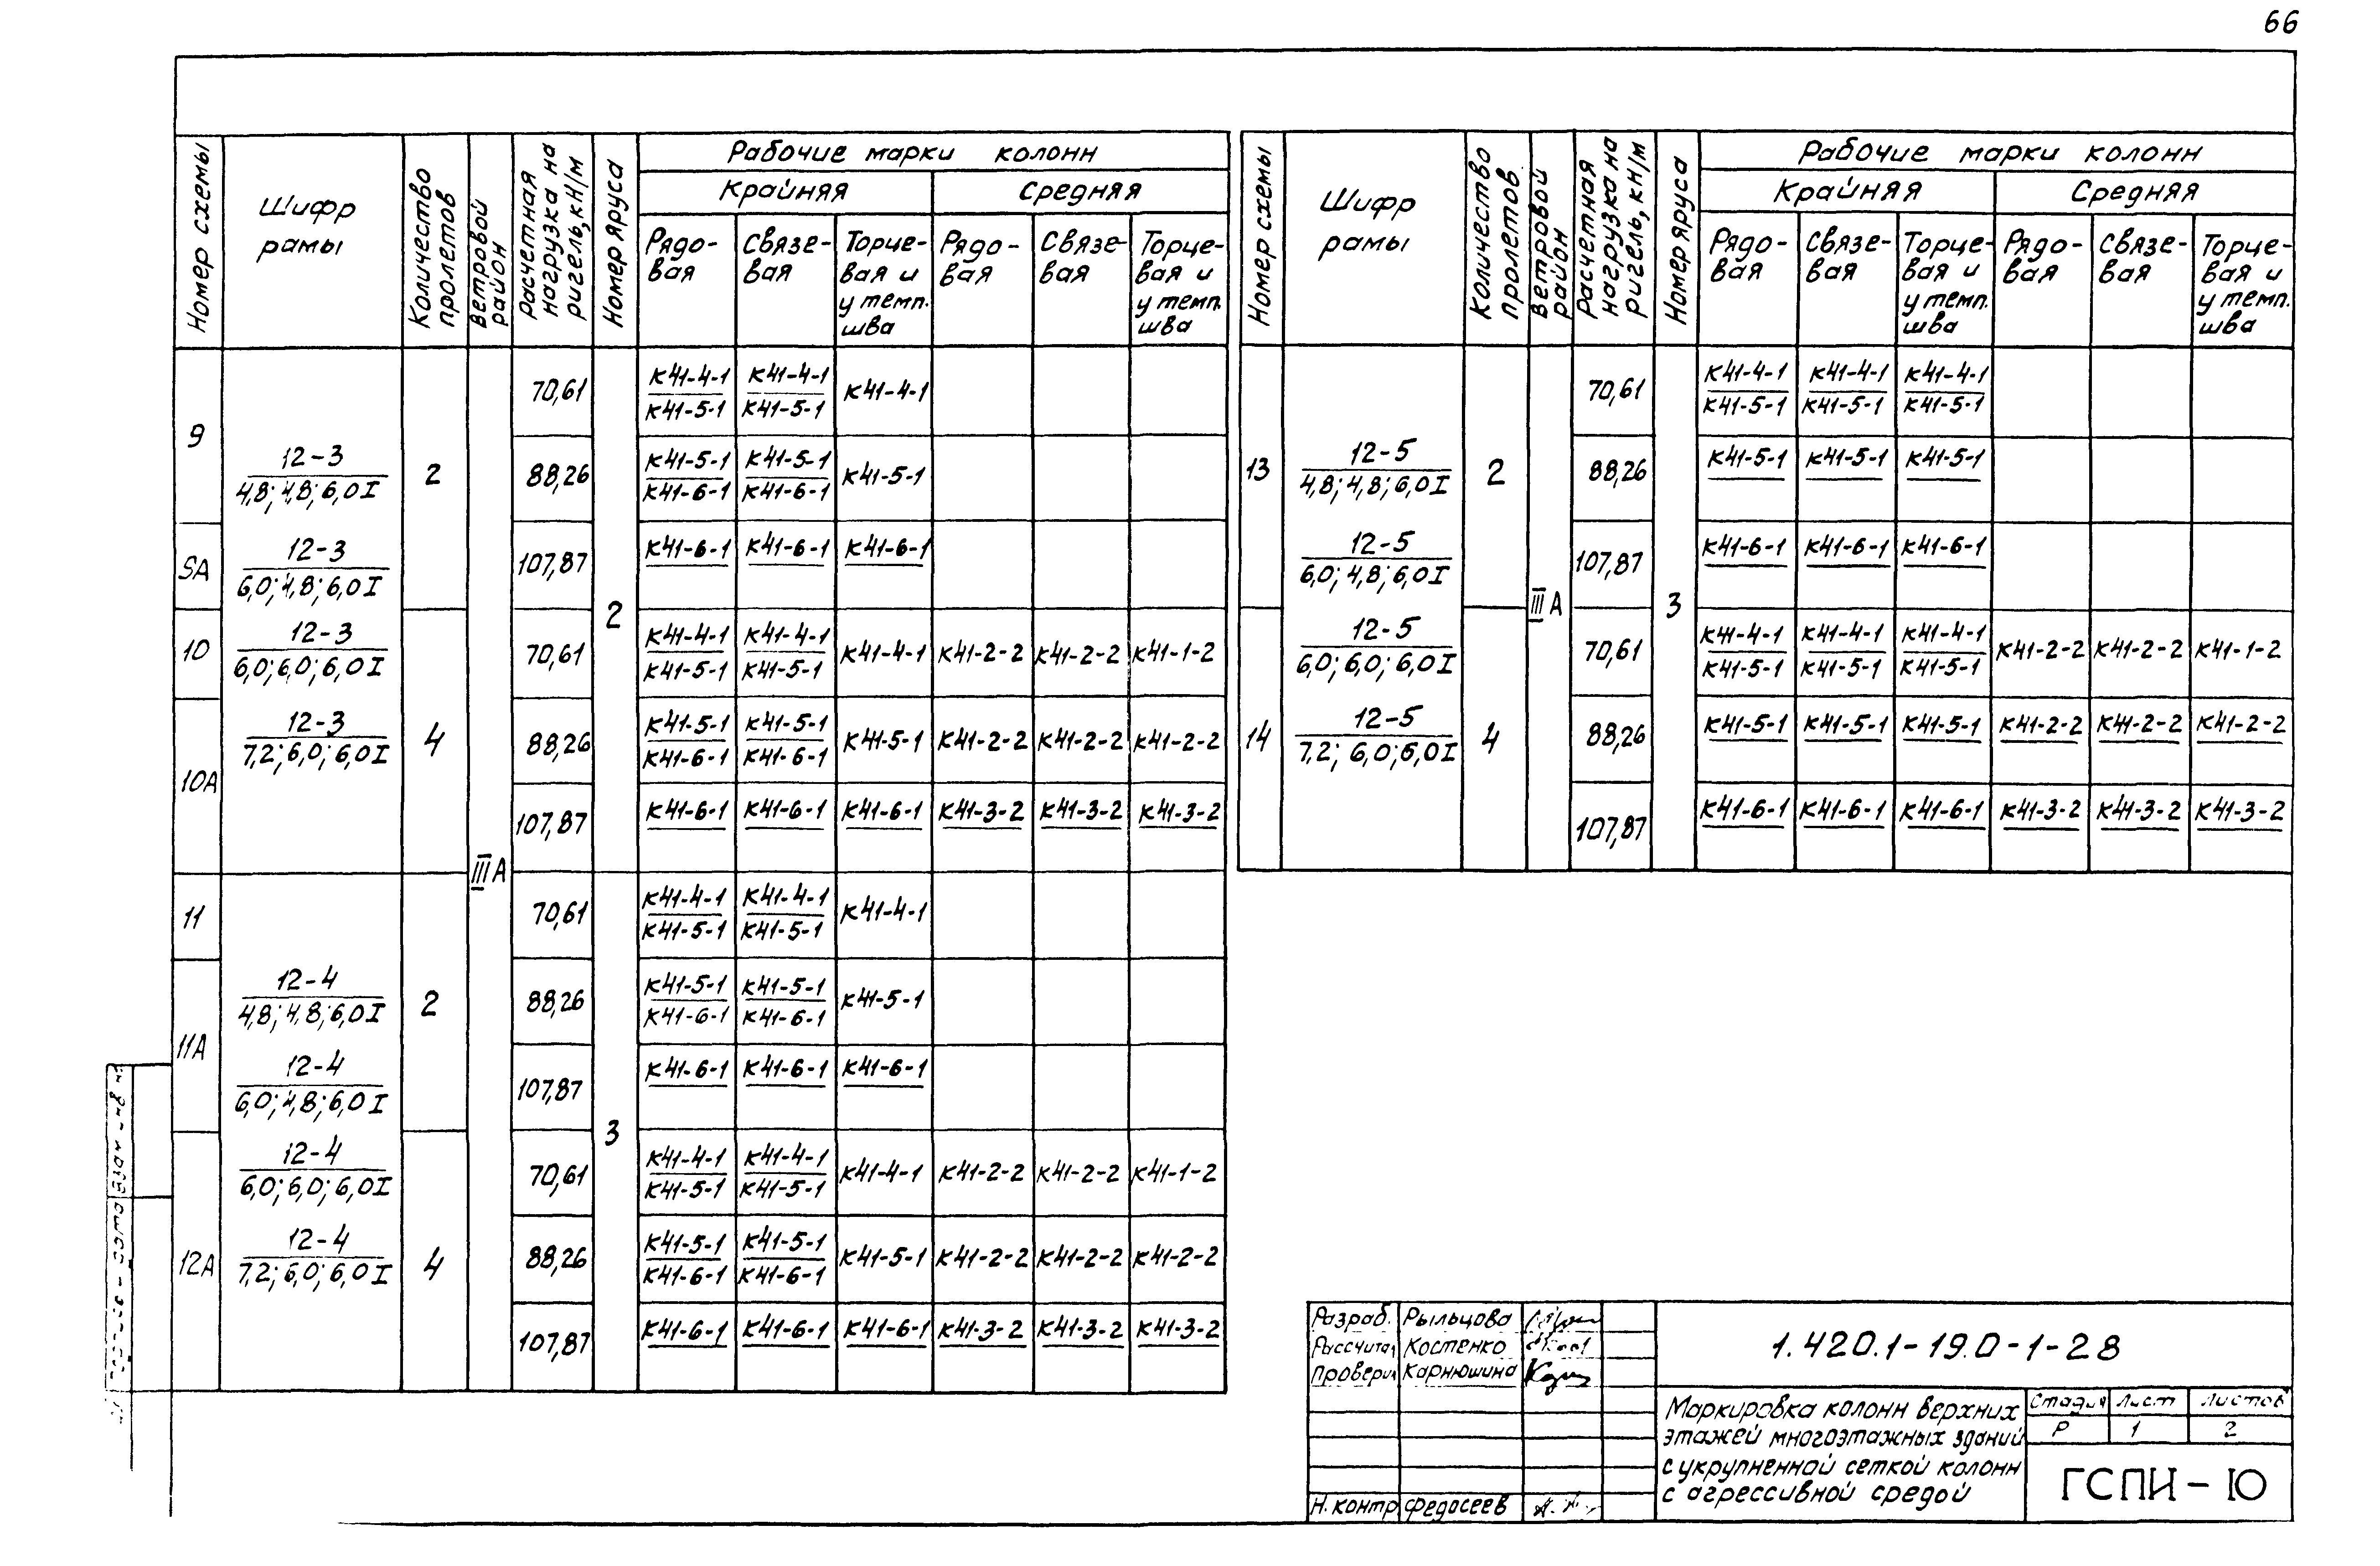 66
Номер схемы
Шифр рамы
Количество пролетов
Ветровой район
Расчетная нагрузка на ригель, кН/м
Номер яруса
Рабочие марки колонн
Крайняя
Средняя
Рядо-вая
Связе-вая
Торце-вая и у темп. шва
Рядо-вая
Связе-вая
Торце-вая и у темп. шва
9
9А
10
10А
11
11А
12А
12-3
4,8; 4,8; 6,0 I
12-3
6,0; 4,8; 6,0 I
12-3
6,0; 6,0; 6,0 I
12-3
7,2; 6,0; 6,0 I
12-4
4,8; 4,8; 6,0 I
12-4
6,0; 4,8; 6,0 I
12-4
6,0; 6,0; 6,0 I
12-4
7,2; 6,0; 6,0 I
2
4
2
4
III А
2
3
70,61 К41-4-1 К41-4-1 К41-4-1
К41-5-1 К41-5-1
88,26 К41-5-1 К41-5-1 К41-5-1
К41-6-1 К41-6-1
107,87 К41-6-1 К41-6-1 К41-6-1
70,61 К41-4-1 К41-4-1 К41-4-1 К41-2-2 К41-2-2 К41-1-2
К41-5-1 К41-5-1
88,26 К41-5-1 К41-5-1 К41-5-1 К41-2-2 К41-2-2 К41-2-2
К41-6-1 К41-6-1
107,87 К41-6-1 К41-6-1 К41-6-1 К41-3-2 К41-3-2 К41-3-2
70,61 К41-4-1 К41-4-1 К41-4-1
К41-5-1 К41-5-1
88,26 К41-5-1 К41-5-1 К41-5-1
К41-6-1 К41-6-1
107,87 К41-6-1 К41-6-1 К41-6-1
70,61 К41-4-1 К41-4-1 К41-4-1 К41-2-2 К41-2-2 К41-1-2
К41-5-1 К41-5-1
88,26 К41-5-1 К41-5-1 К41-5-1 К41-2-2 К41-2-2 К41-2-2
К41-6-1 К41-6-1
107,87 К41-6-1 К41-6-1 К41-6-1 К41-3-2 К41-3-2 К41-3-2
Номер схемы
Шифр рамы
Количество пролетов
Ветровой район
Расчетная нагрузка на ригель, кН/м
Номер яруса
Рабочие марки колонн
Крайняя
Средняя
Рядо-вая
Связе-вая
Торце-вая и у темп. шва
Рядо-вая
Связе-вая
Торце-вая и у темп. шва
13
14
12-5
4,8; 4,8; 6,0 I
12-5
6,0; 4,8; 6,0 I
12-5
6,0; 6,0; 6,0 I
12-5
7,2; 6,0; 6,0 I
2
4
III А
3
70,61 К41-4-1 К41-4-1 К41-4-1
К41-5-1 К41-5-1 К41-5-1
88,26 К41-5-1 К41-5-1 К41-5-1
107,87 К41-6-1 К41-6-1 К41-6-1
70,61 К41-4-1 К41-4-1 К41-4-1 К41-2-2 К41-2-2 К41-1-2
К41-5-1 К41-5-1 К41-5-1
88,26 К41-5-1 К41-5-1 К41-5-1 К41-2-2 К41-2-2 К41-2-2
107,87 К41-6-1 К41-6-1 К41-6-1 К41-3-2 К41-3-2 К41-3-2
Разраб. Рыльцова
Рассчитал Костенко
Проверил Карнюшина
Н. контр Федосеев
1.420.1-19.0-1-28
Маркировка колонн верхних
этажей многоэтажных зданий
с укрупненной сеткой колонн
с агрессивной средой
Стадия Лист Листов
Р 1 2
ГСПИ-10